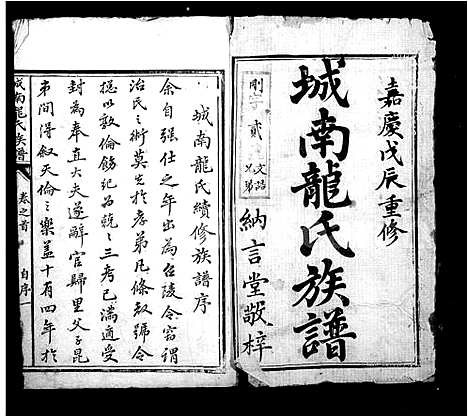 嘉慶戊辰重修
城南龍氏族譜
剛字
貳
文詔
兄弟
納言堂敬梓
城南龍氏續修族譜序
余自强仕之年出為召陵令竊謂
治民之術莫先於孝弟凡條教號令
提以敦倫飭紀為兢〻三考已滿適受
封為奉直大夫遂辭官歸里父子昆
弟間得敘天倫之樂蓋十有四年於
城南龍氏族譜
卷之首
自序